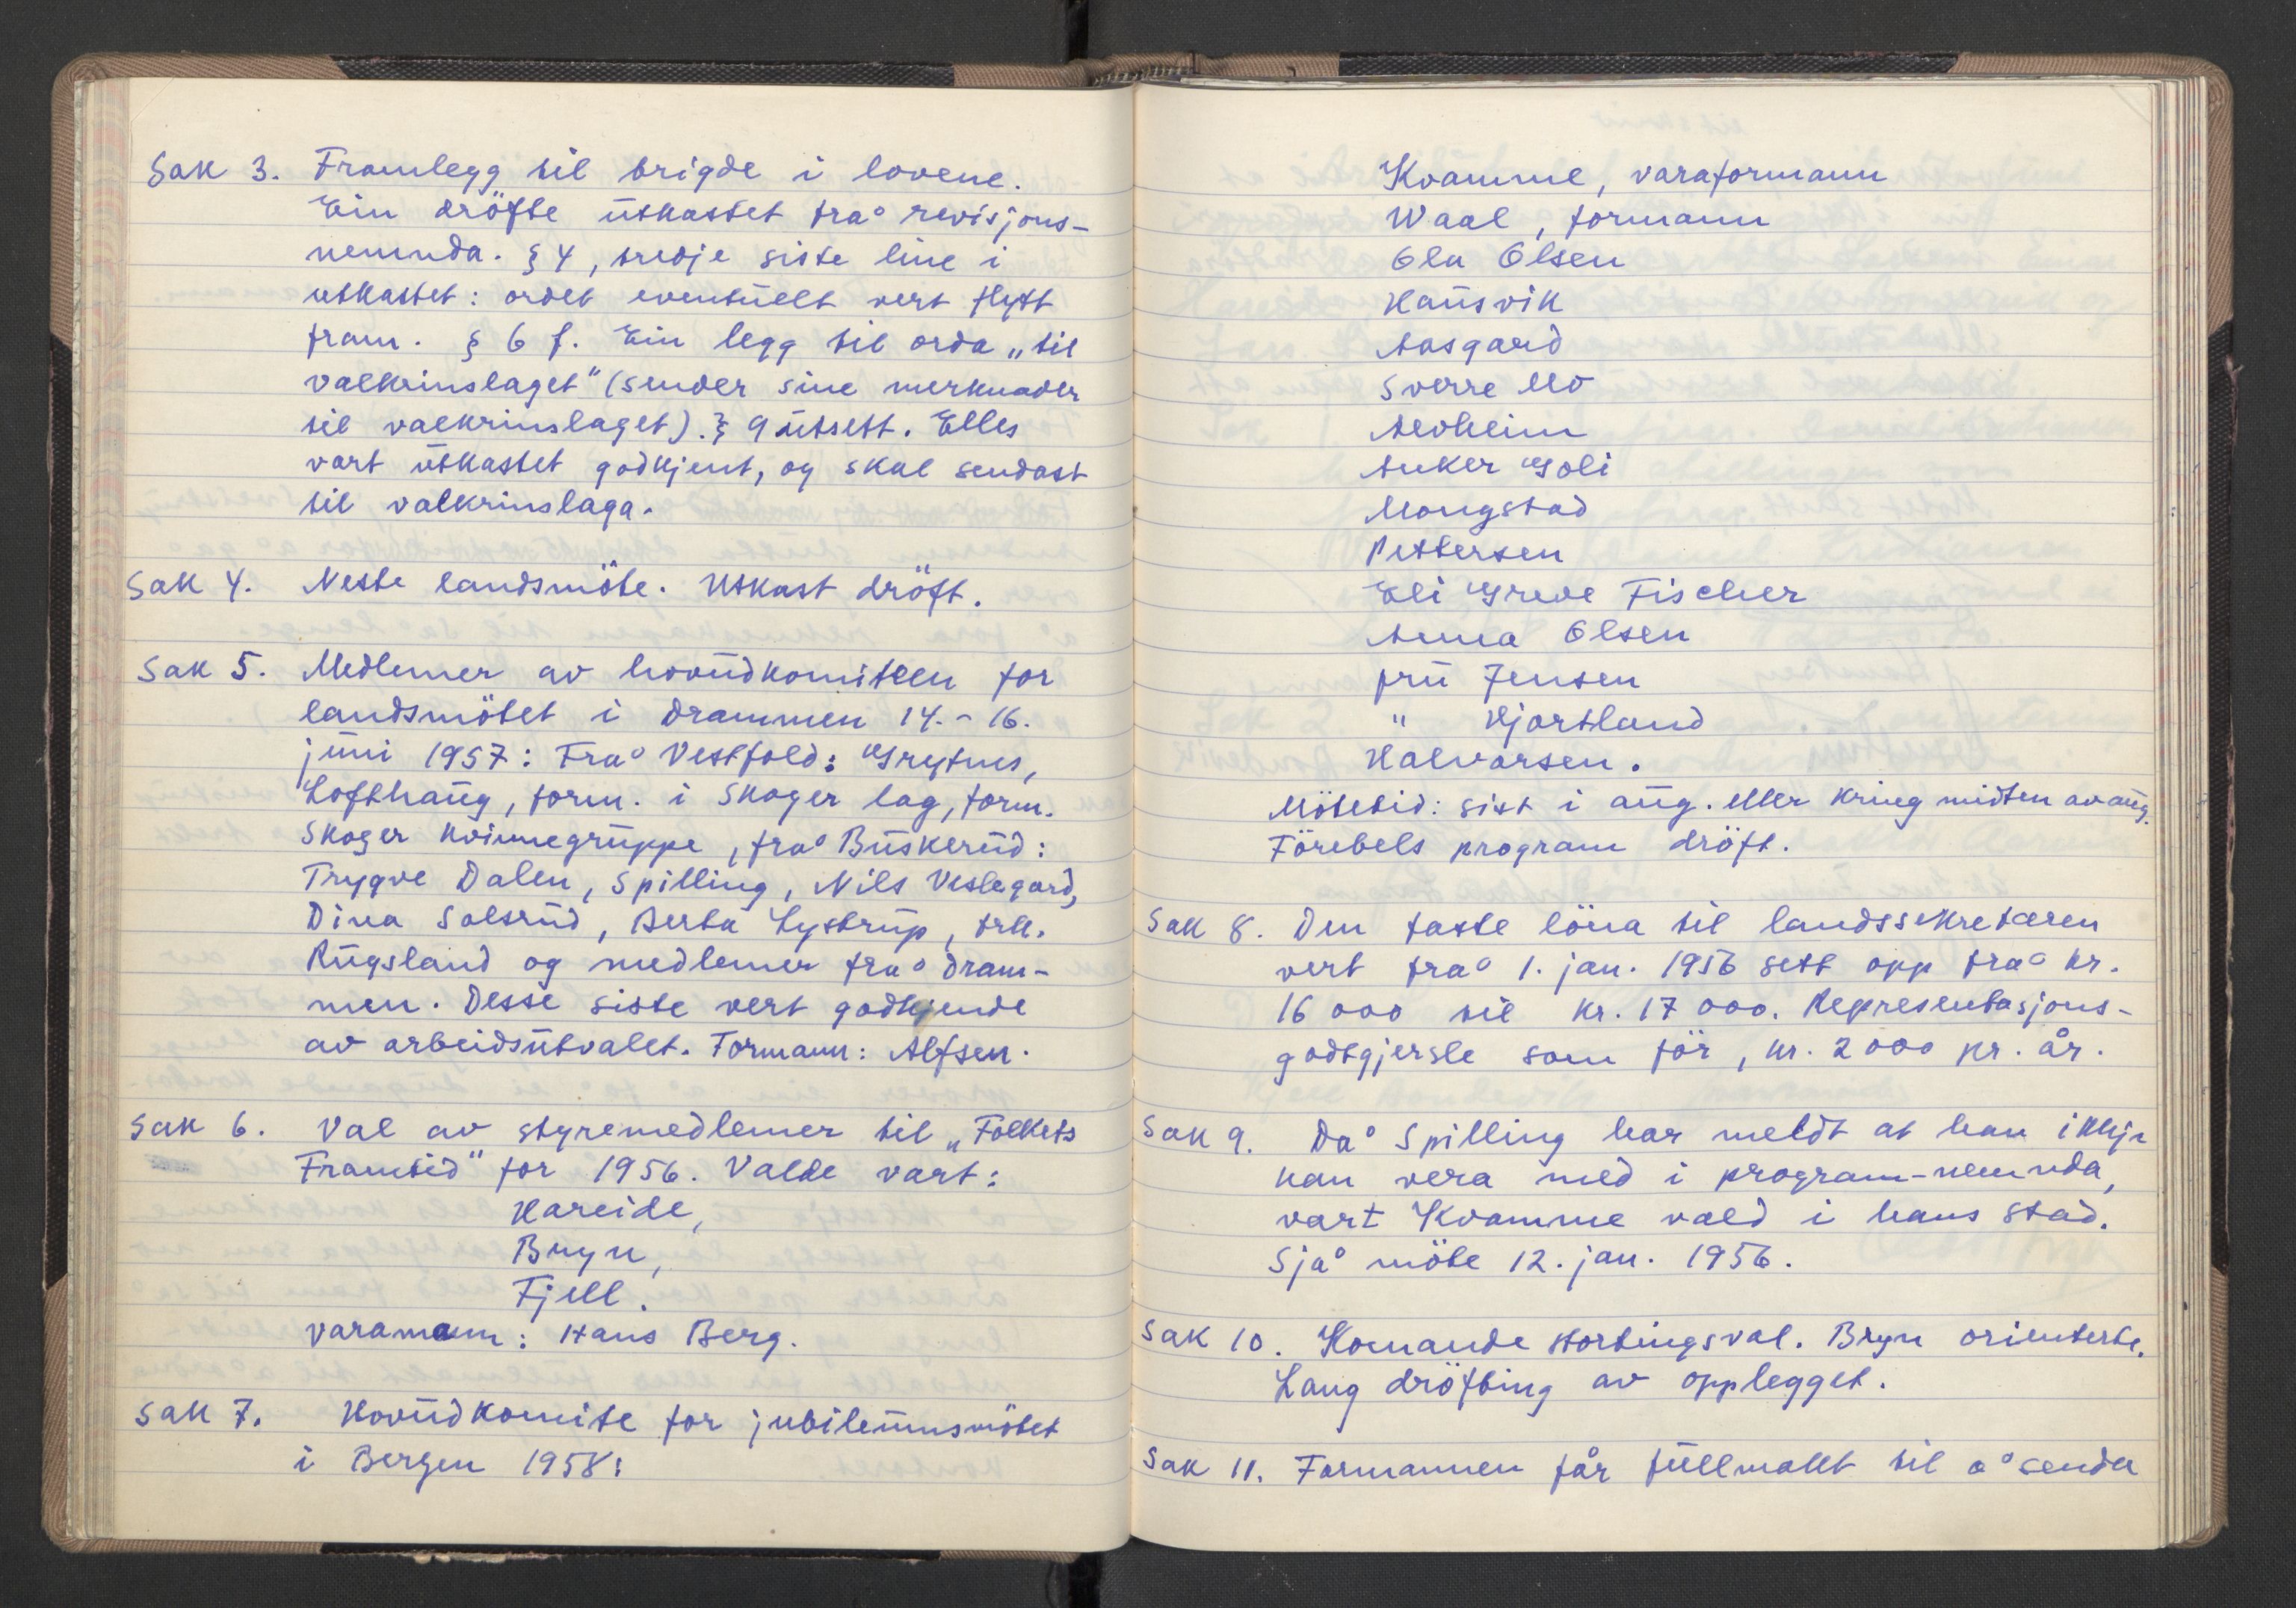 Sak 3. Framlegg til brigde i lovene.
Ein dröfte utkastet frå revisjons-
nemnda. § 4, tredje siste line i
utkastet: ordet eventuelt vert flytt
fram. § 6 f. Ein legg til orda „til
valkrinslaget" (sender sine merknader
til valkrinslaget). § 9 utsett. Elles
vart utkastet godkjent, og skal sendast
til valkrinslaga.
Sak 4. Neste landsmöte. Utkast dröft.
Sak 5. Medlemer av hovudkomiteen for
landsmötet i Drammen 14.-16.
juni 1957: Frå Vestfold: Grytnes,
Lofthaug, form. i Skoger lag, form.
Skoger kvinnegruppe, frå Buskerud:
Trygve Dalen, Spilling, Nils Veslegard,
Dina Solsrud, Berta Lystrup, frk.
Rugsland og medlemer frå Dram-
men. Desse siste vert godkjende
av arbeidsutvalet. Formann: Alfsen.
Sak 6. Val av styremedlemer til „Folkets
Framtid" for 1956. Valde vart:
Hareide,
Bryn,
Fjell.
varamann: Hans Berg.
Sak 7. Hovudkomite for jubileumsmötet
i Bergen 1958:
Kvamme, varaformann
Waal, formann
Ola Olsen
Hausvik
Aasgard
Sverre Mo
Alvheim
Anker Goli
Mongstad
Pettersen
Eli Greve Fischer
Anna Olsen
fru Jensen
" Hjortland
Halvorsen.
Mötetid: sist i aug. eller kring midten av aug.
Förebels program dröft.
Sak 8. Den faste löna til landssekretæren
vert frå 1. jan. 1956 sett opp frå kr.
16 000 til kr. 17 000. Representasjons-
godtgjersle som för, kr. 2 000 pr. år.
Sak 9. Då Spilling har meldt at han ikkje
kan vera med i program-nemnda,
vart Kvamme vald i hans stad.
Sjå möte 12. jan. 1956.
Sak 10. Komande stortingsval. Bryn orienterte.
Lang dröfting av opplegget.
Sak 11. Formannen får fullmakt til å senda